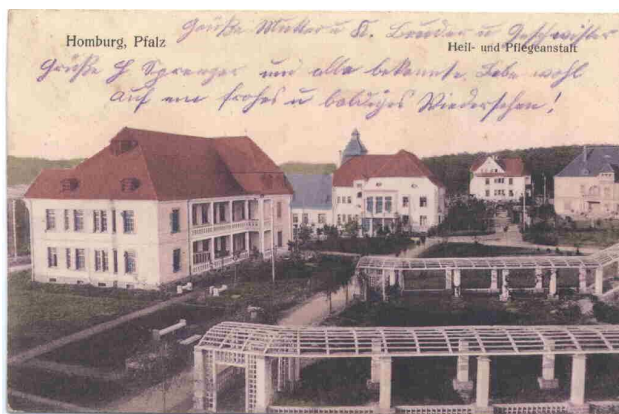 Homburg, Pfalz
Heil- und Pflegeanstalt
Grüße Mutter u Kl. Bruder u Geschwister
Grüße H Sprenger und alle bekannte. Lebe wohl
auf ein frohes u baldiges Wiedersehen!